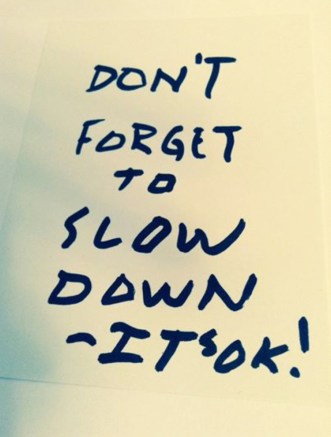 DON'T
FORGET
TO
SLOW
DOWN
-ITS OK!